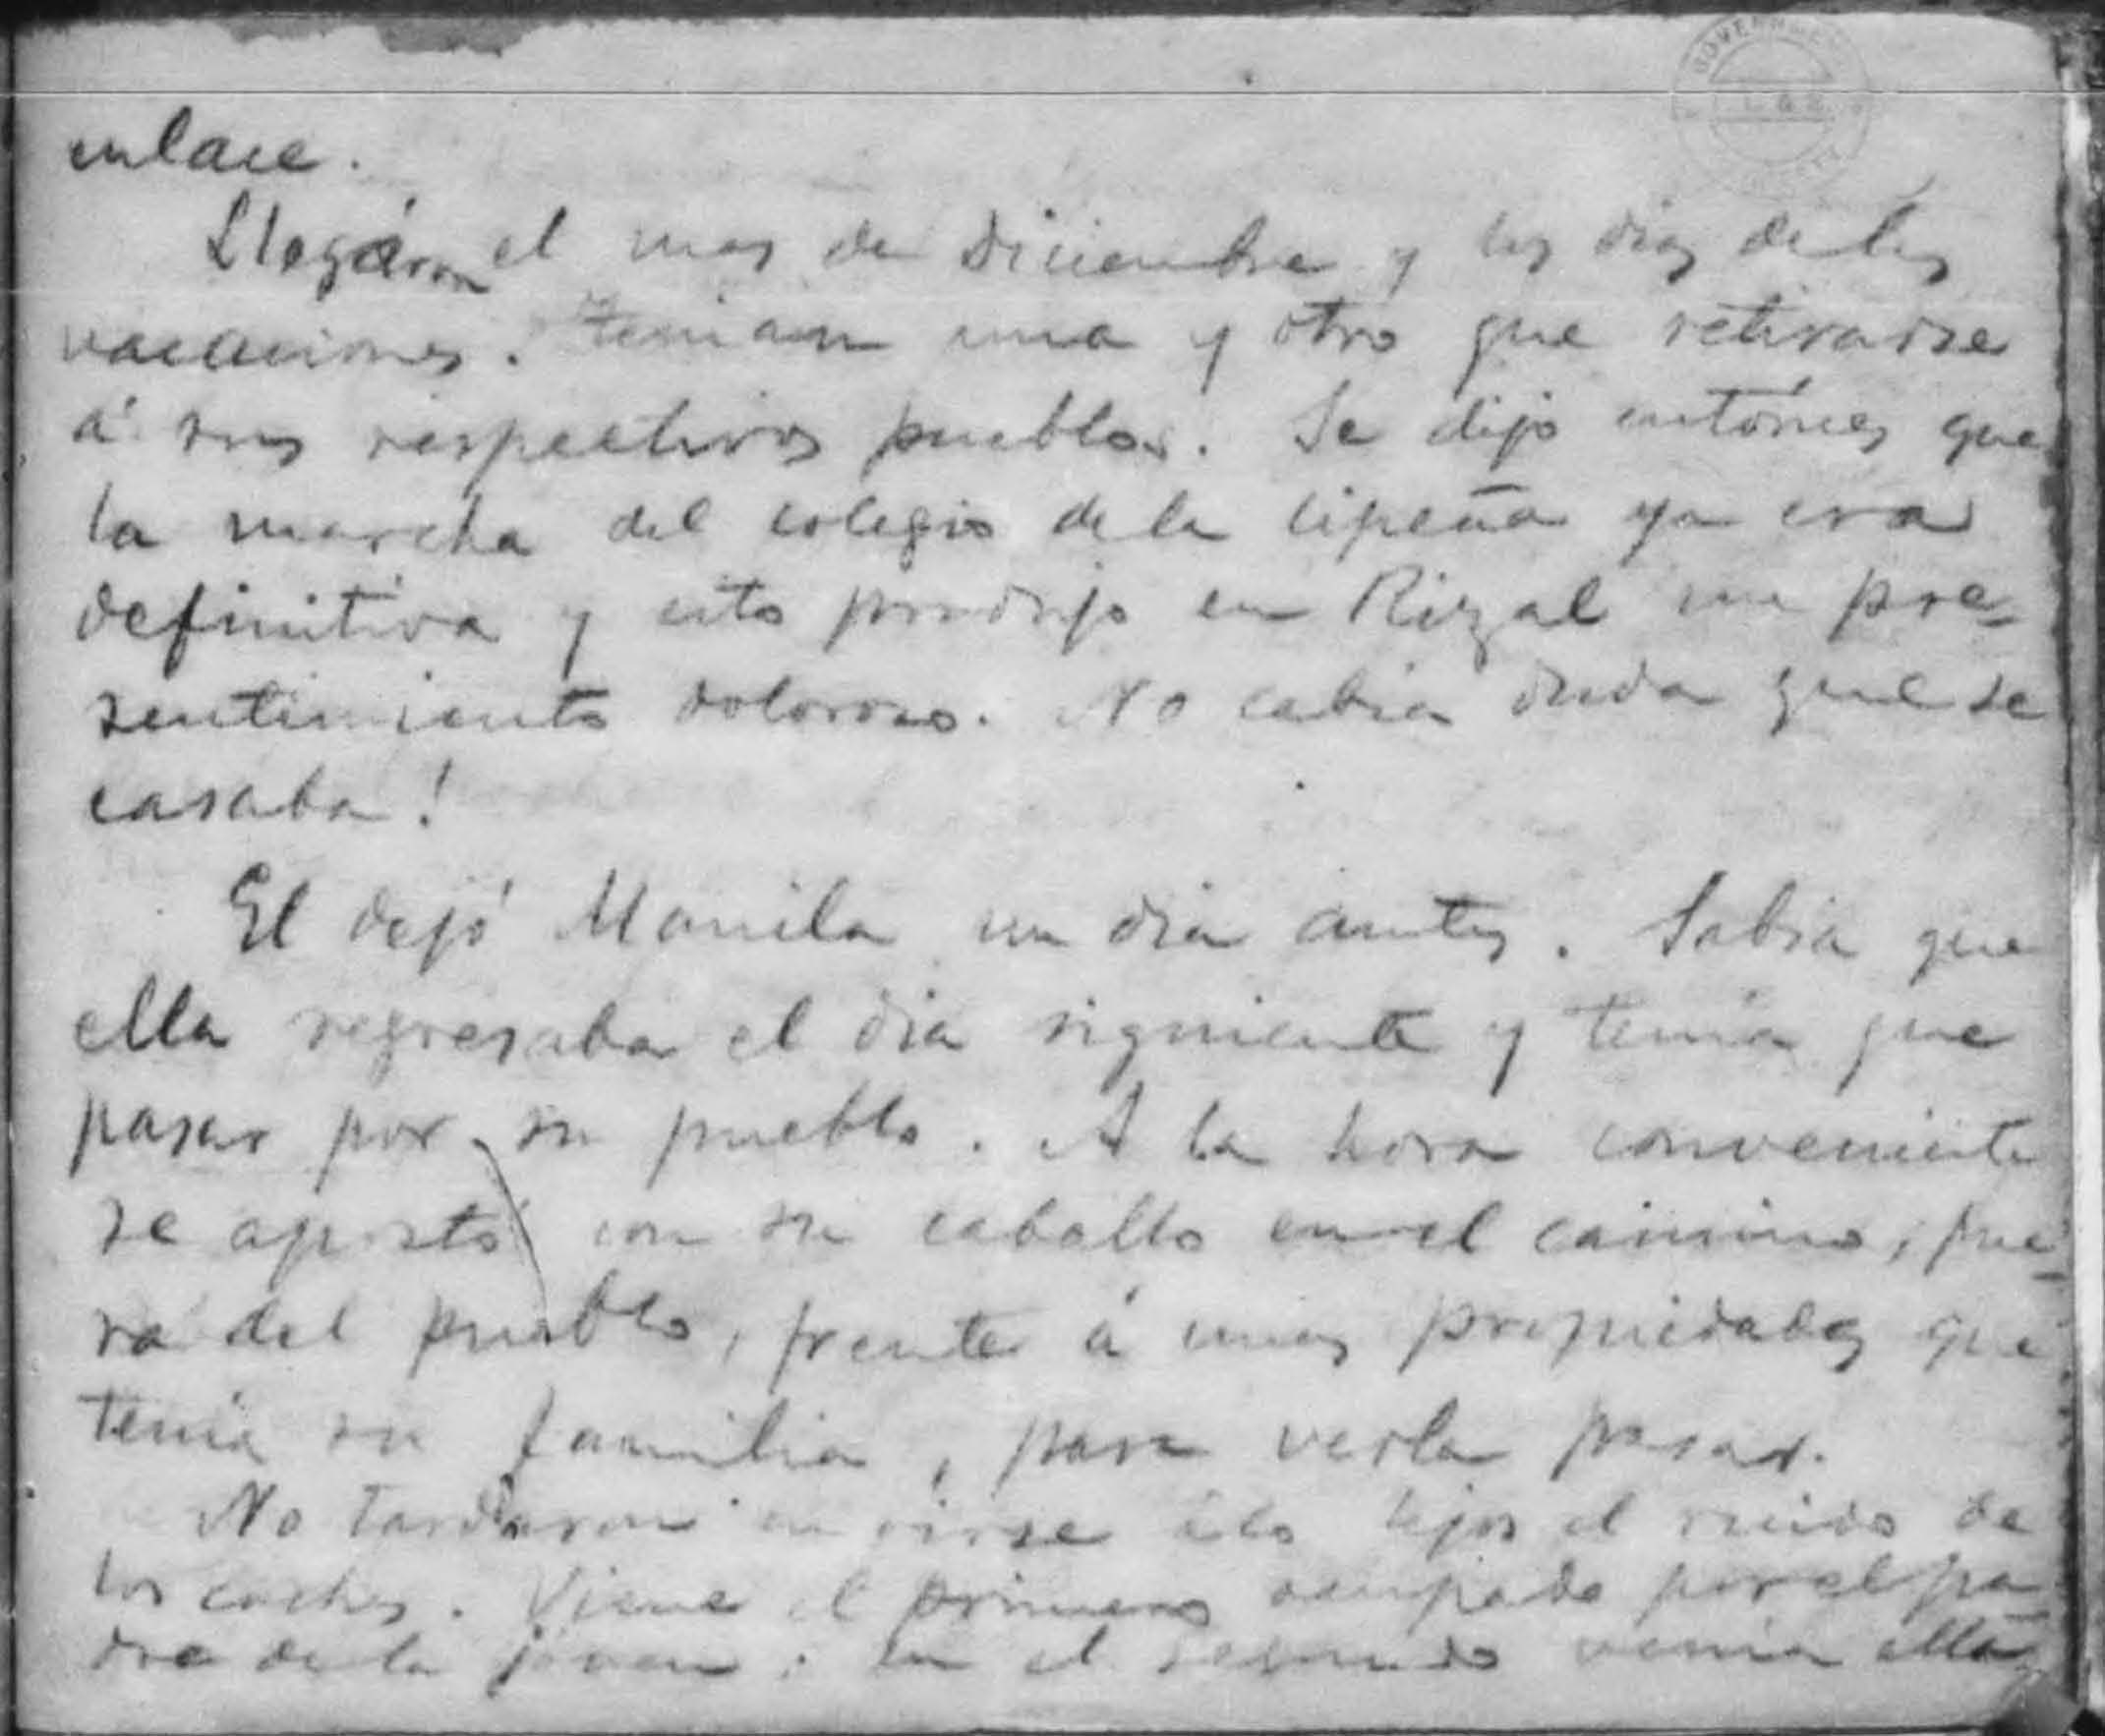 enlace.
Llegáron el mes de Diciembre y los dias de las
vacaciones. tenian una y otro que retirarse
á sus respectivos pueblos. Se dijo entónces que
la marcha del colegio de la lipeña ya era
definitiva y esto produjo en Rizal un pre-
sentimiento doloroso. No cabia duda que se
casaba!
El dejó Manila un dia antes. Sabia que
ella regresaba el dia siguiente y tenia que
pasar por su pueblo. A la hora conveniente
se apostó con su caballo en el camino, fue-
ra del pueblo, frente á unas propiedades que
tenia su familia, para verla pasar.
No tardaron en oirse á lo lejos el ruido de
los coches. Viene el primero ocupado por el pa-
dre de la joven: en el segundo venia ella,